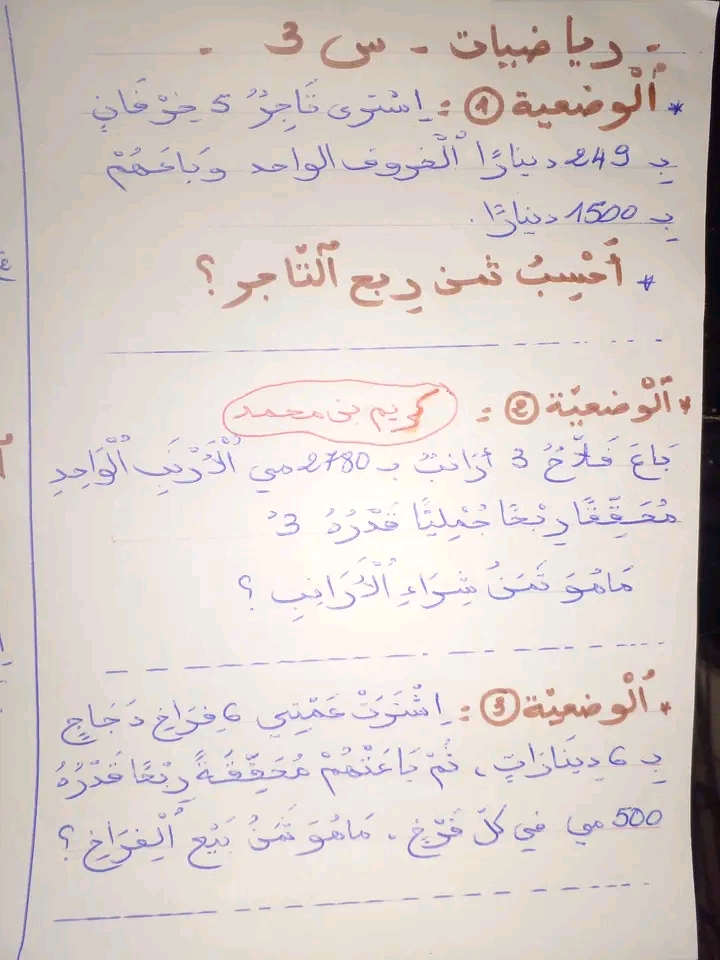 - رياضيات - س 3 -
* اَلْوضعية ① : اِشترى تَاجِرٌ 5 خِرْفَانٍ
بِـ 249 دينارًا اَلْخروف الواحد وَبَاعَهُمْ
بِـ 1500 دينارًا.
* أَحْسِبُ ثمن ربح اَلتّاجر ؟
* اَلْوضعيّة ② :
كريم بن محمد
بَاعَ فَلاَّحٌ 3 أرَانبَ بـ 2780 مي اَلْأَرْنَبِ اَلْوَاحِدِ
مُحَقِّقًا رِبْحًا جُمْلِيًّا قَدْرُهُ 3د
مَا هُوَ ثَمَنُ شِرَاءِ اَلْأَرَانِبِ ؟
* اَلْوضعيّة ③ : اِشْتَرَتْ عَمَّتِي 6 فِرَاخِ دَجَاجٍ
بِـ 6 دِينَارَاتٍ، ثُمَّ بَاعَتْهُمْ مُحَقِّقَةً رِبْحًا قَدْرُهُ
500 مي في كلّ فَرْخٍ. مَا هُوَ ثَمَنُ بَيْعِ اَلْفِرَاخِ ؟